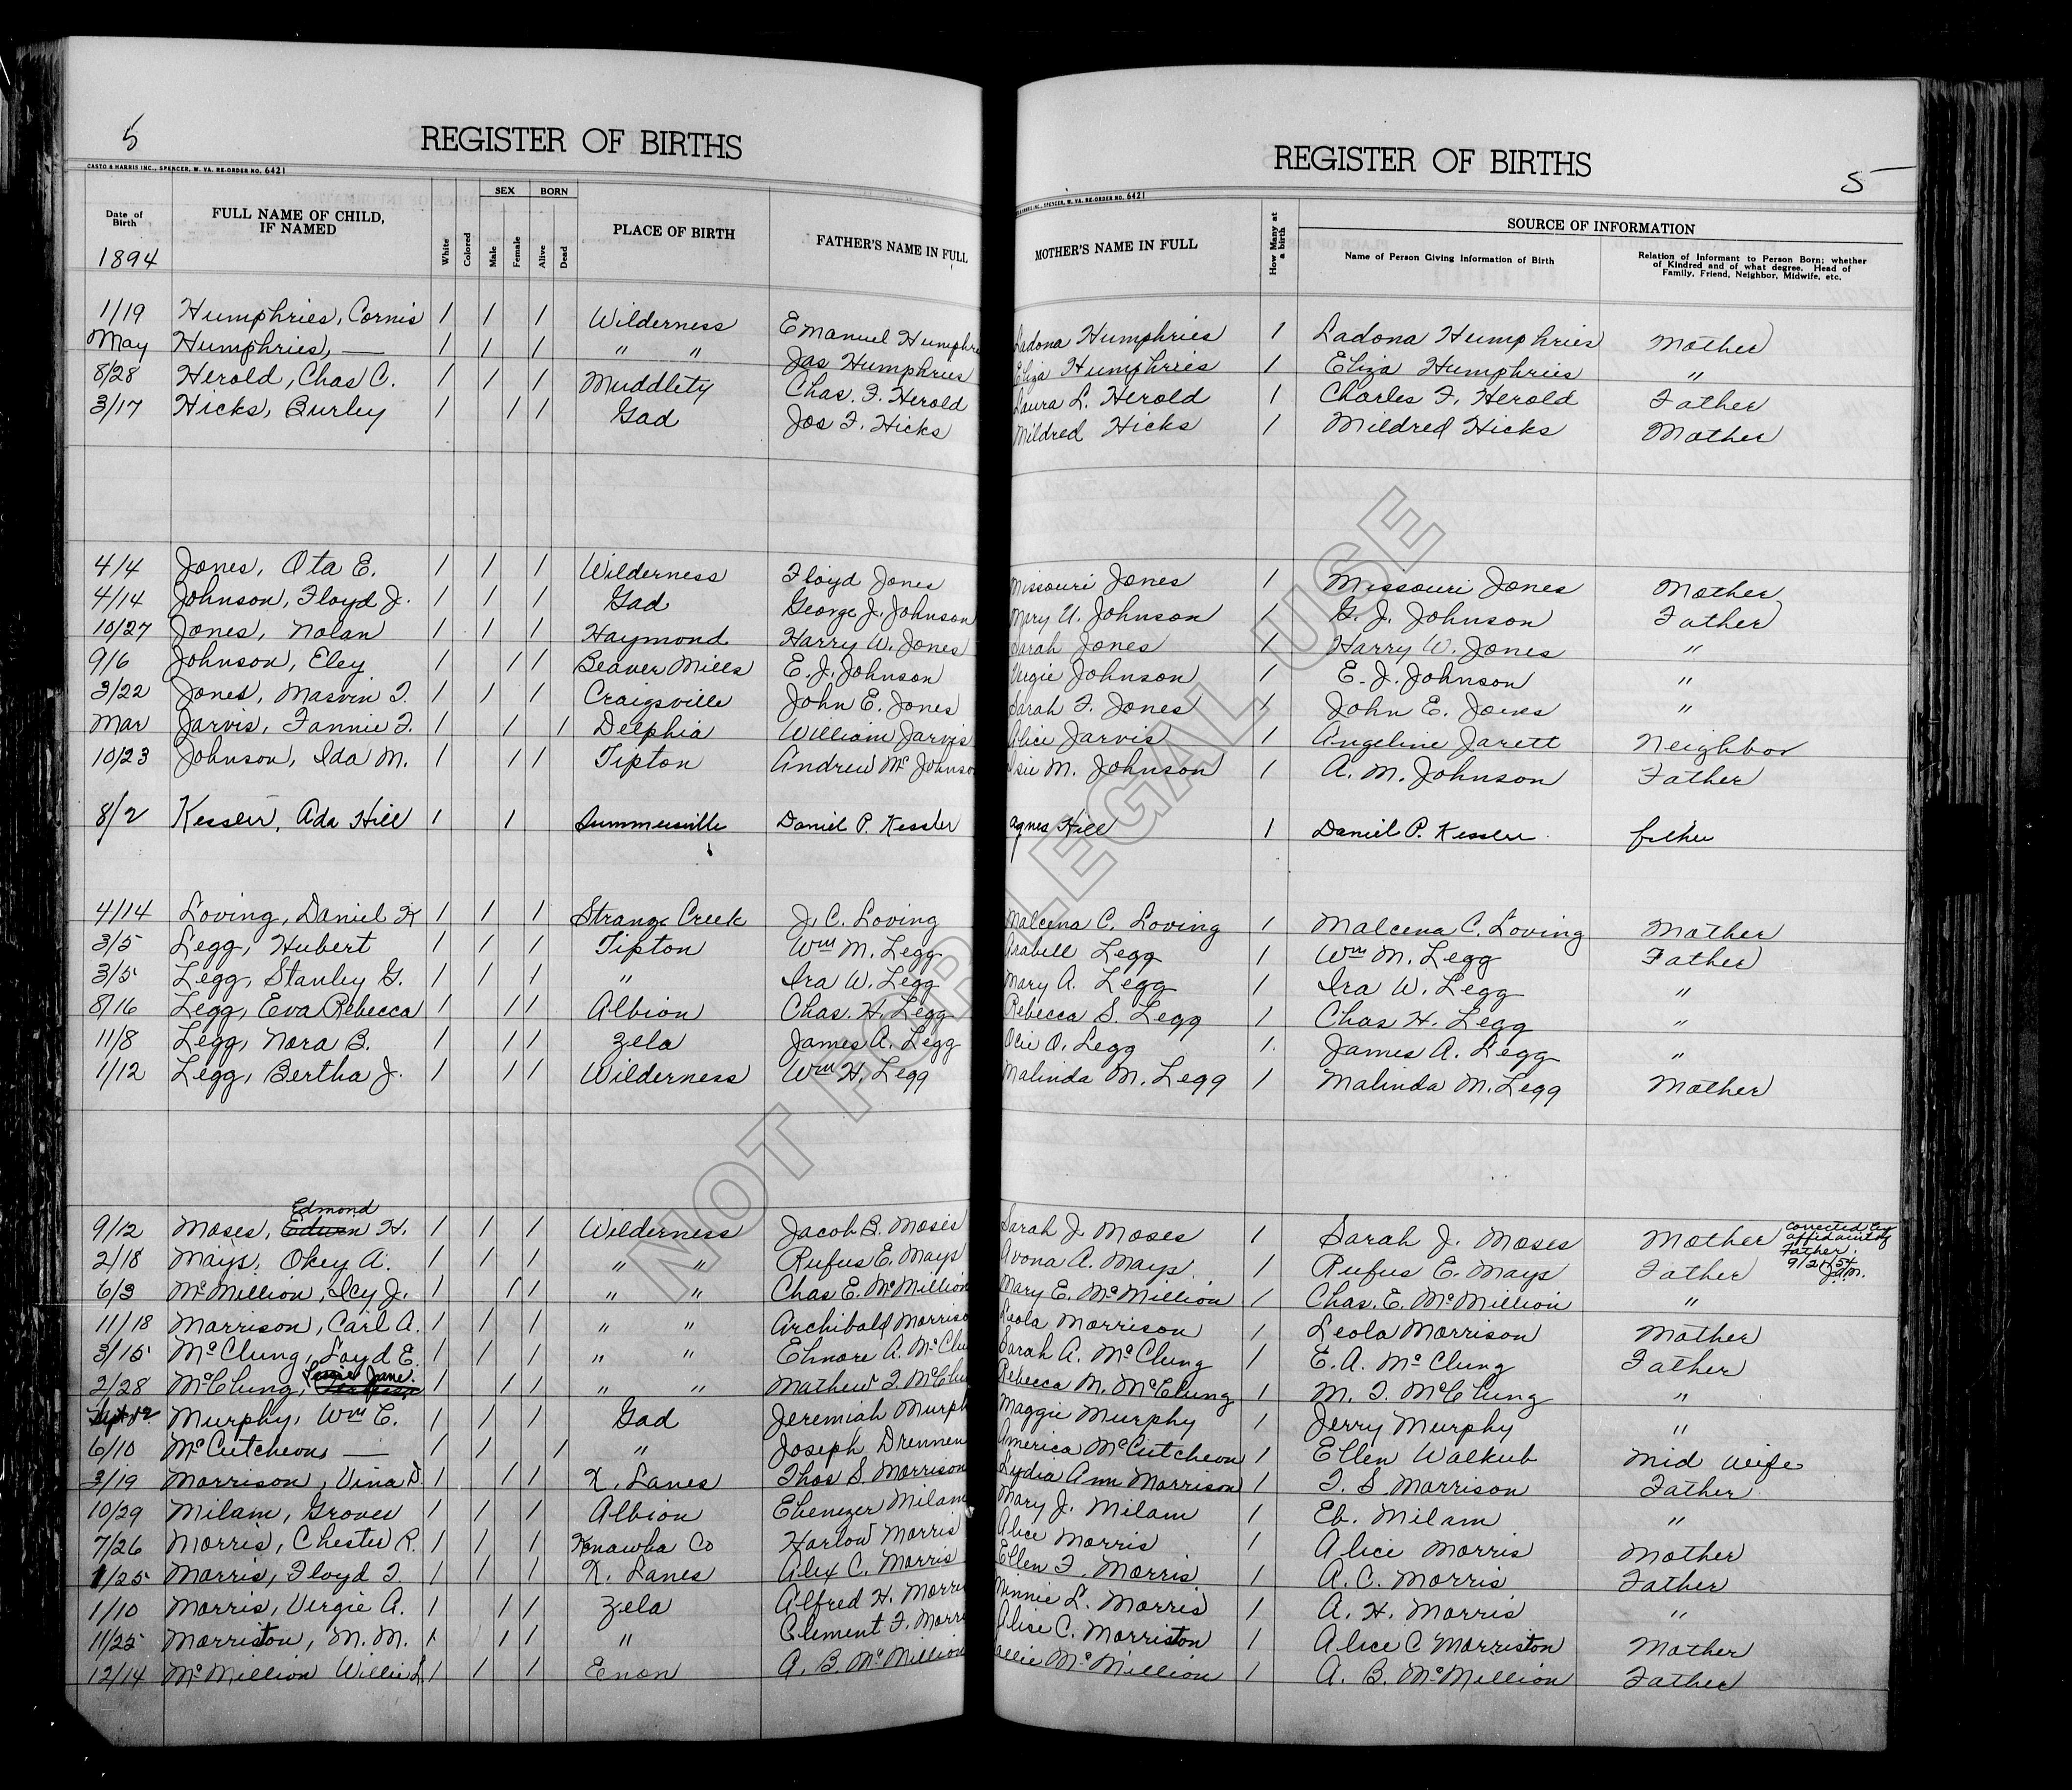 5
REGISTER OF BIRTHS
CASTO & HARRIS INC., SPENCER, W. VA. RE-ORDER NO. 6421
Date of Birth
FULL NAME OF CHILD, IF NAMED
White Colored
SEX Male Female
BORN Alive Dead
PLACE OF BIRTH
FATHER'S NAME IN FULL
1894
REGISTER OF BIRTHS
5
INC., SPENCER, W. VA. RE-ORDER NO. 6421
MOTHER'S NAME IN FULL
How Many at a birth
SOURCE OF INFORMATION
Name of Person Giving Information of Birth
Relation of Informant to Person Born; whether of Kindred and of what degree. Head of Family, Friend, Neighbor, Midwife, etc.
1/19 Humphries, Cornis 1 1 1 Wilderness Emanuel Humphre Ladona Humphries 1 Ladona Humphries Mother
May Humphries, — 1 1 1 " " Jas Humphries Eliza Humphries 1 Eliza Humphries "
8/28 Herold, Chas C. 1 1 1 Muddlety Chas. F. Herold Laura L. Herold 1 Charles F. Herold Father
3/17 Hicks, Burley 1 1 1 Gad Jos F. Hicks Mildred Hicks 1 Mildred Hicks Mother
4/4 Jones, Ota E. 1 1 1 Wilderness Floyd Jones Missouri Jones 1 Missouri Jones Mother
4/14 Johnson, Floyd J. 1 1 1 Gad George J. Johnson Mary U. Johnson 1 G. J. Johnson Father
10/27 Jones, Nolan 1 1 1 Haymond Harry W. Jones Sarah Jones 1 Harry W. Jones "
9/6 Johnson, Eley 1 1 1 Beaver Mills E. J. Johnson Virgie Johnson 1 E. J. Johnson "
3/22 Jones, Masvin T. 1 1 1 Craigsville John E. Jones Sarah F. Jones 1 John E. Jones "
Mar Jarvis, Fannie F. 1 1 1 Delphia William Jarvis Alice Jarvis 1 Angeline Jarett Neighbor
10/23 Johnson, Ida M. 1 1 1 Tipton Andrew Mc Johnso M. Johnson 1 A. M. Johnson Father
8/2 Kessler, Ada Hill 1 1 Summersville Daniel P. Kessler Agnes Hill 1 Daniel P. Kessler father
4/14 Loving, Daniel K 1 1 1 Strange Creek J. C. Loving Malcena C. Loving 1 Malcena C. Loving Mother
3/5 Legg, Hubert 1 1 1 Tipton Wm M. Legg Arabell Legg 1 Wm M. Legg Father
3/5 Legg, Stanley G. 1 1 1 " Ira W. Legg Mary A. Legg 1 Ira W. Legg "
8/16 Legg, Eva Rebecca 1 1 1 Albion Chas. H. Legg Rebecca S. Legg 1 Chas H. Legg "
11/8 Legg, Nora B. 1 1 1 Zela James A. Legg Olie O. Legg 1 James A. Legg "
1/12 Legg, Bertha J. 1 1 1 Wilderness Wm H. Legg Malinda M. Legg 1 Malinda M. Legg Mother
Edmond
9/12 Moses, Edwen H. 1 1 1 Wilderness Jacob B. Moses Sarah J. Moses 1 Sarah J. Moses Mother Corrected by affidavit of Father. 9/21/54 J.A.M.
2/18 Mays, Okey A. 1 1 1 " " Rufus E. Mays Avona A. Mays 1 Rufus E. Mays Father
6/3 McMillion, Icy J. 1 1 1 " " Chas E. McMillion Mary E. McMillion 1 Chas. E. McMillion "
11/18 Morrison, Carl A. 1 1 1 " " Archibald Morriso Leola Morrison 1 Leola Morrison Mother
3/15 McClung, Loyd E. 1 1 1 " " Elmore A. McClu Sarah A. McClung 1 E. A. McClung Father
Jane.
2/28 McClung, 1 1 1 " " Mathew T. McClu Rebecca M. McClung 1 M. T. McClung "
Murphy, Wm C. 1 1 1 Gad Jeremiah Murph Maggie Murphy 1 Jerry Murphy "
6/10 McCutcheon, — 1 1 1 " Joseph Drennen America McCutcheon 1 Ellen Walkub Mid Wife
3/19 Morrison, Vina D. 1 1 1 K. Lanes Thos S. Morrison Lydia Ann Morrison 1 T. S Morrison Father
10/29 Milam, Grover 1 1 1 Albion Ebenezer Milam Mary J. Milam 1 Eb. Milam "
7/26 Morris, Chester R. 1 1 1 Kanawha Co Harlow Morris Alice Morris 1 Alice Morris Mother
1/25 Morris, Floyd T. 1 1 1 K. Lanes Alex C. Morris Ellen F. Morris 1 A. C. Morris Father
1/10 Morris, Vergie A. 1 1 1 Zela Alfred H. Morri Minnie L. Morris 1 A. H. Morris "
11/25 Morriston, M. M. 1 1 1 " Clement F. Morri Alice C. Morriston 1 Alice C Morriston Mother
12/14 McMillion Willie L. 1 1 1 Enon A. B. McMillion allie McMillion 1 A. B. McMillion Father
NOT FOR LEGAL USE